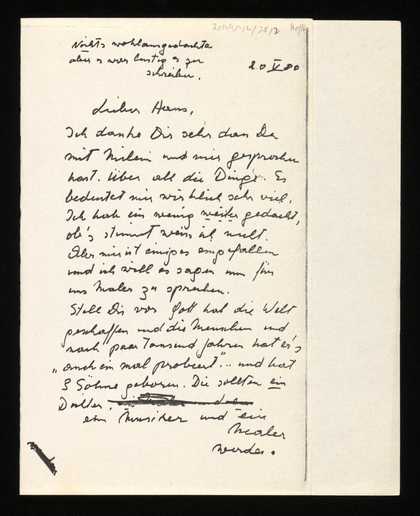 Nichts wohlausgedachtes
aber s war lustig es zu
schreiben.
20 V 80
Lieber Hans,
Ich danke Dir sehr dass Du
mit Milein und mir gesprochen
hast. über all die Dinge. Es
bedeutet mir wirklich sehr viel.
Ich hab ein wenig weiter gedacht,
ob's stimmt weiss ich nicht.
Aber mir ist einiges eingefallen
und ich will es sagen um für
uns Maler zu sprechen.
Stell Dir vor Gott hat die Welt
geschaffen und die Menschen und
nach paar Tausend Jahren hat er's
„auch ein mal probiert"... und hat
3 Söhne geboren. Die sollten ein
Dichter,
ein Musiker und ein
Maler
werden.